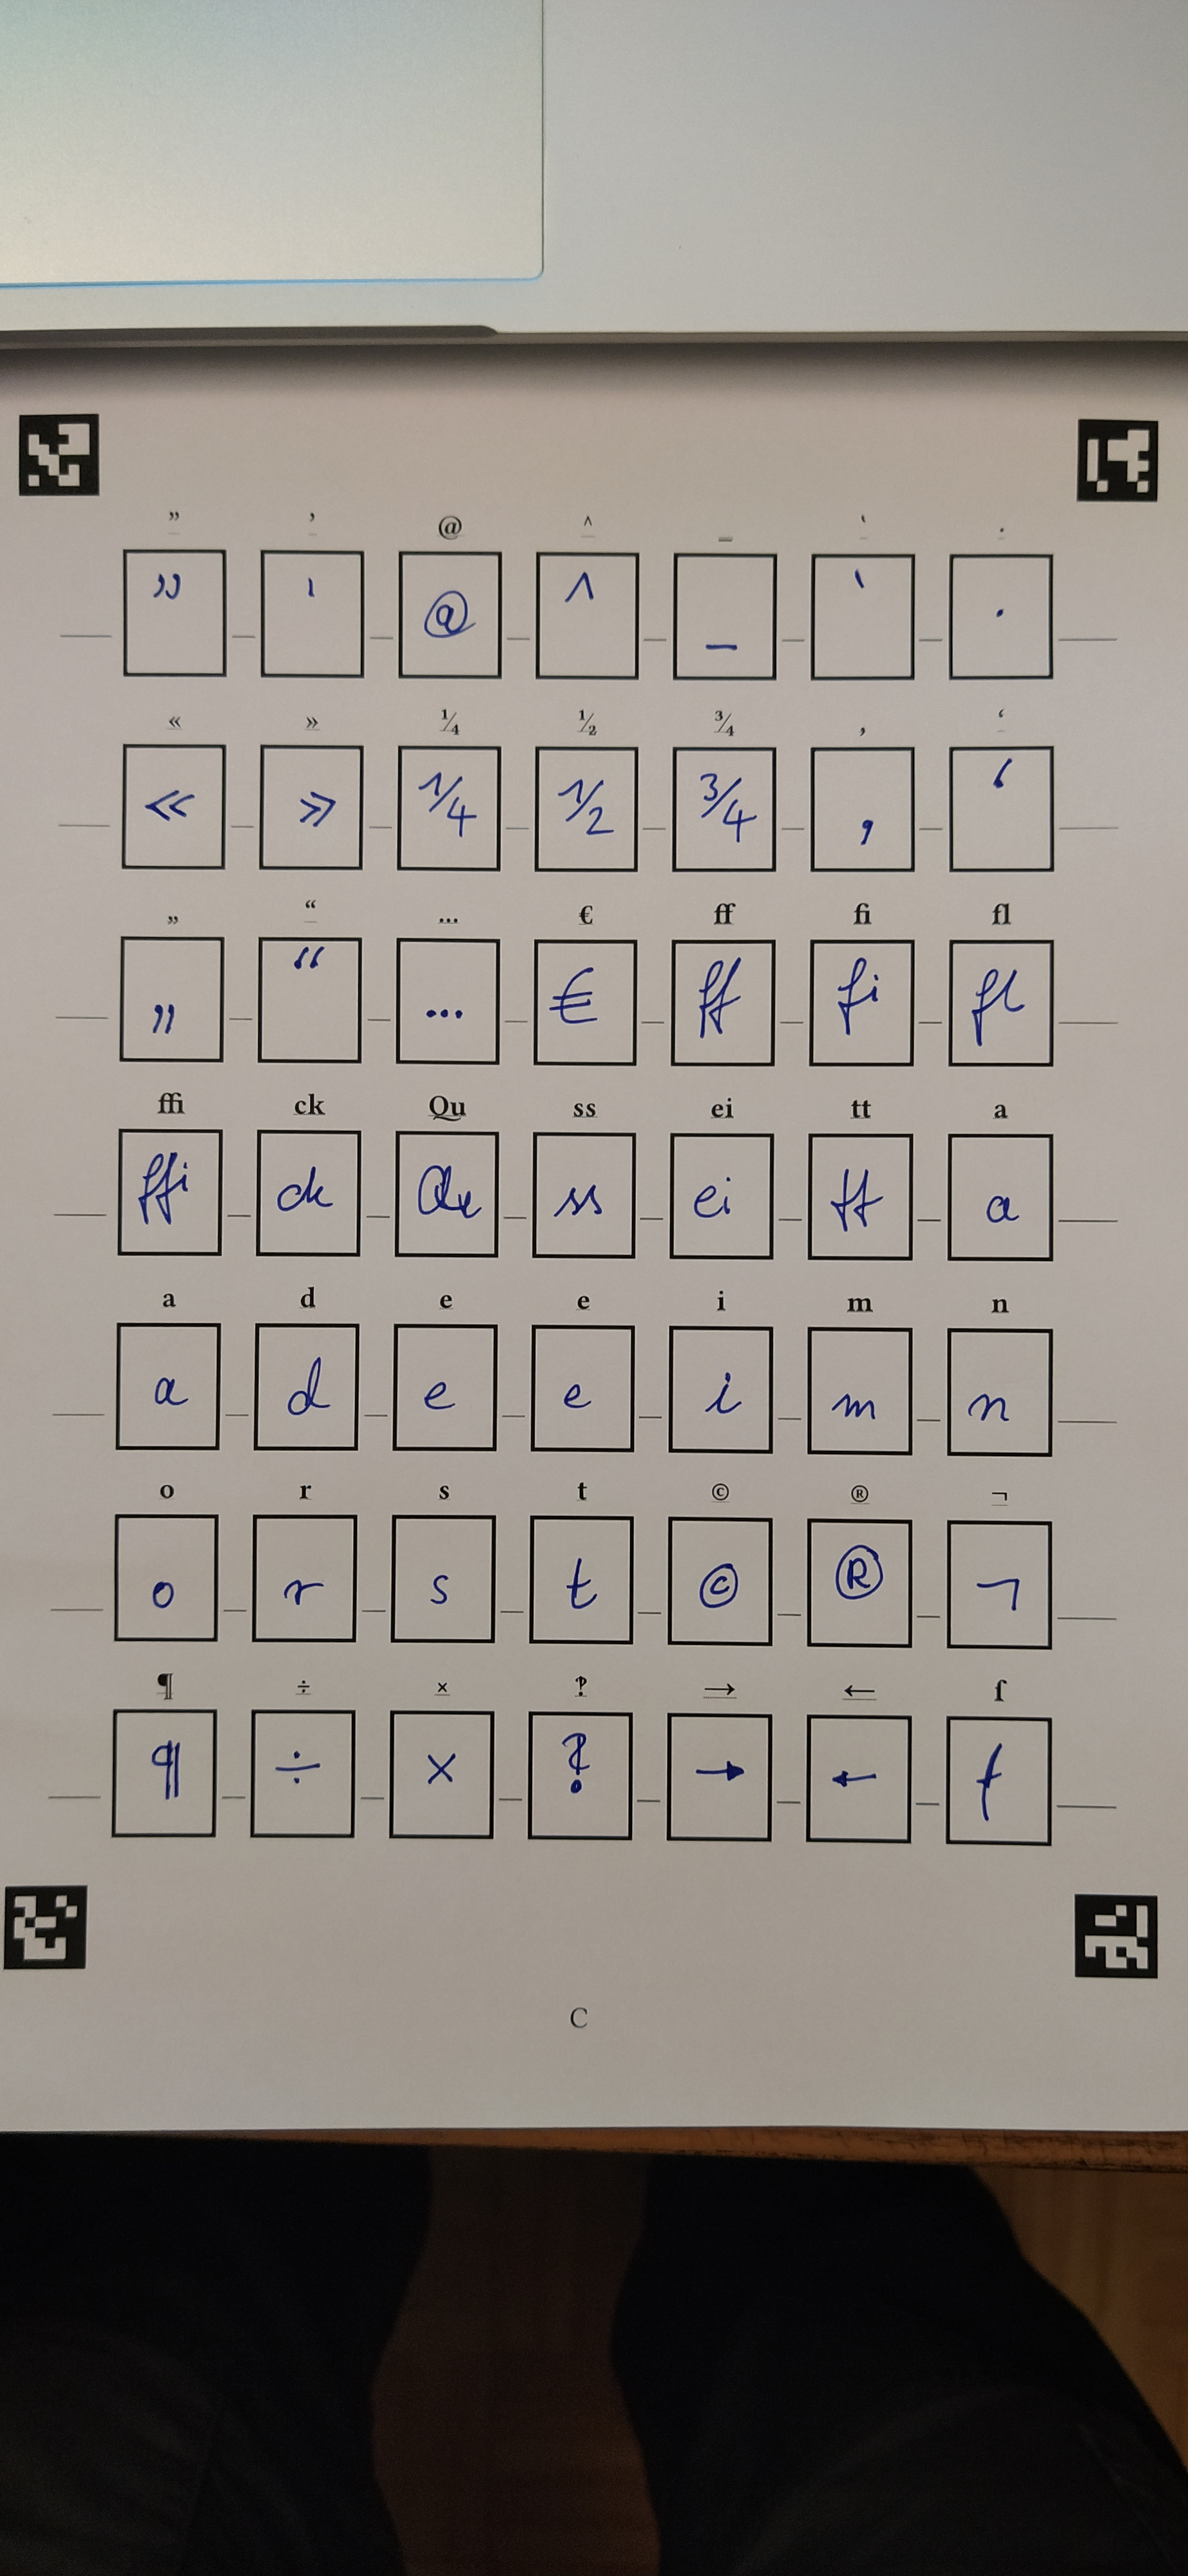 ” ’ @ ^ _ ‘ ·
” ' @ ^ _ ` ·
« » ¼ ½ ¾ , ‘
« » 1/4 1/2 3/4 , ‘
„ “ ... € ff fi fl
„ “ ... € ff fi fl
ffi ck Qu ss ei tt a
ffi ck Qu ss ei tt a
a d e e i m n
a d e e i m n
o r s t © ® ¬
o r s t © ® ¬
¶ ÷ × ‽ → ← ſ
¶ ÷ × ‽ → ← ſ
C